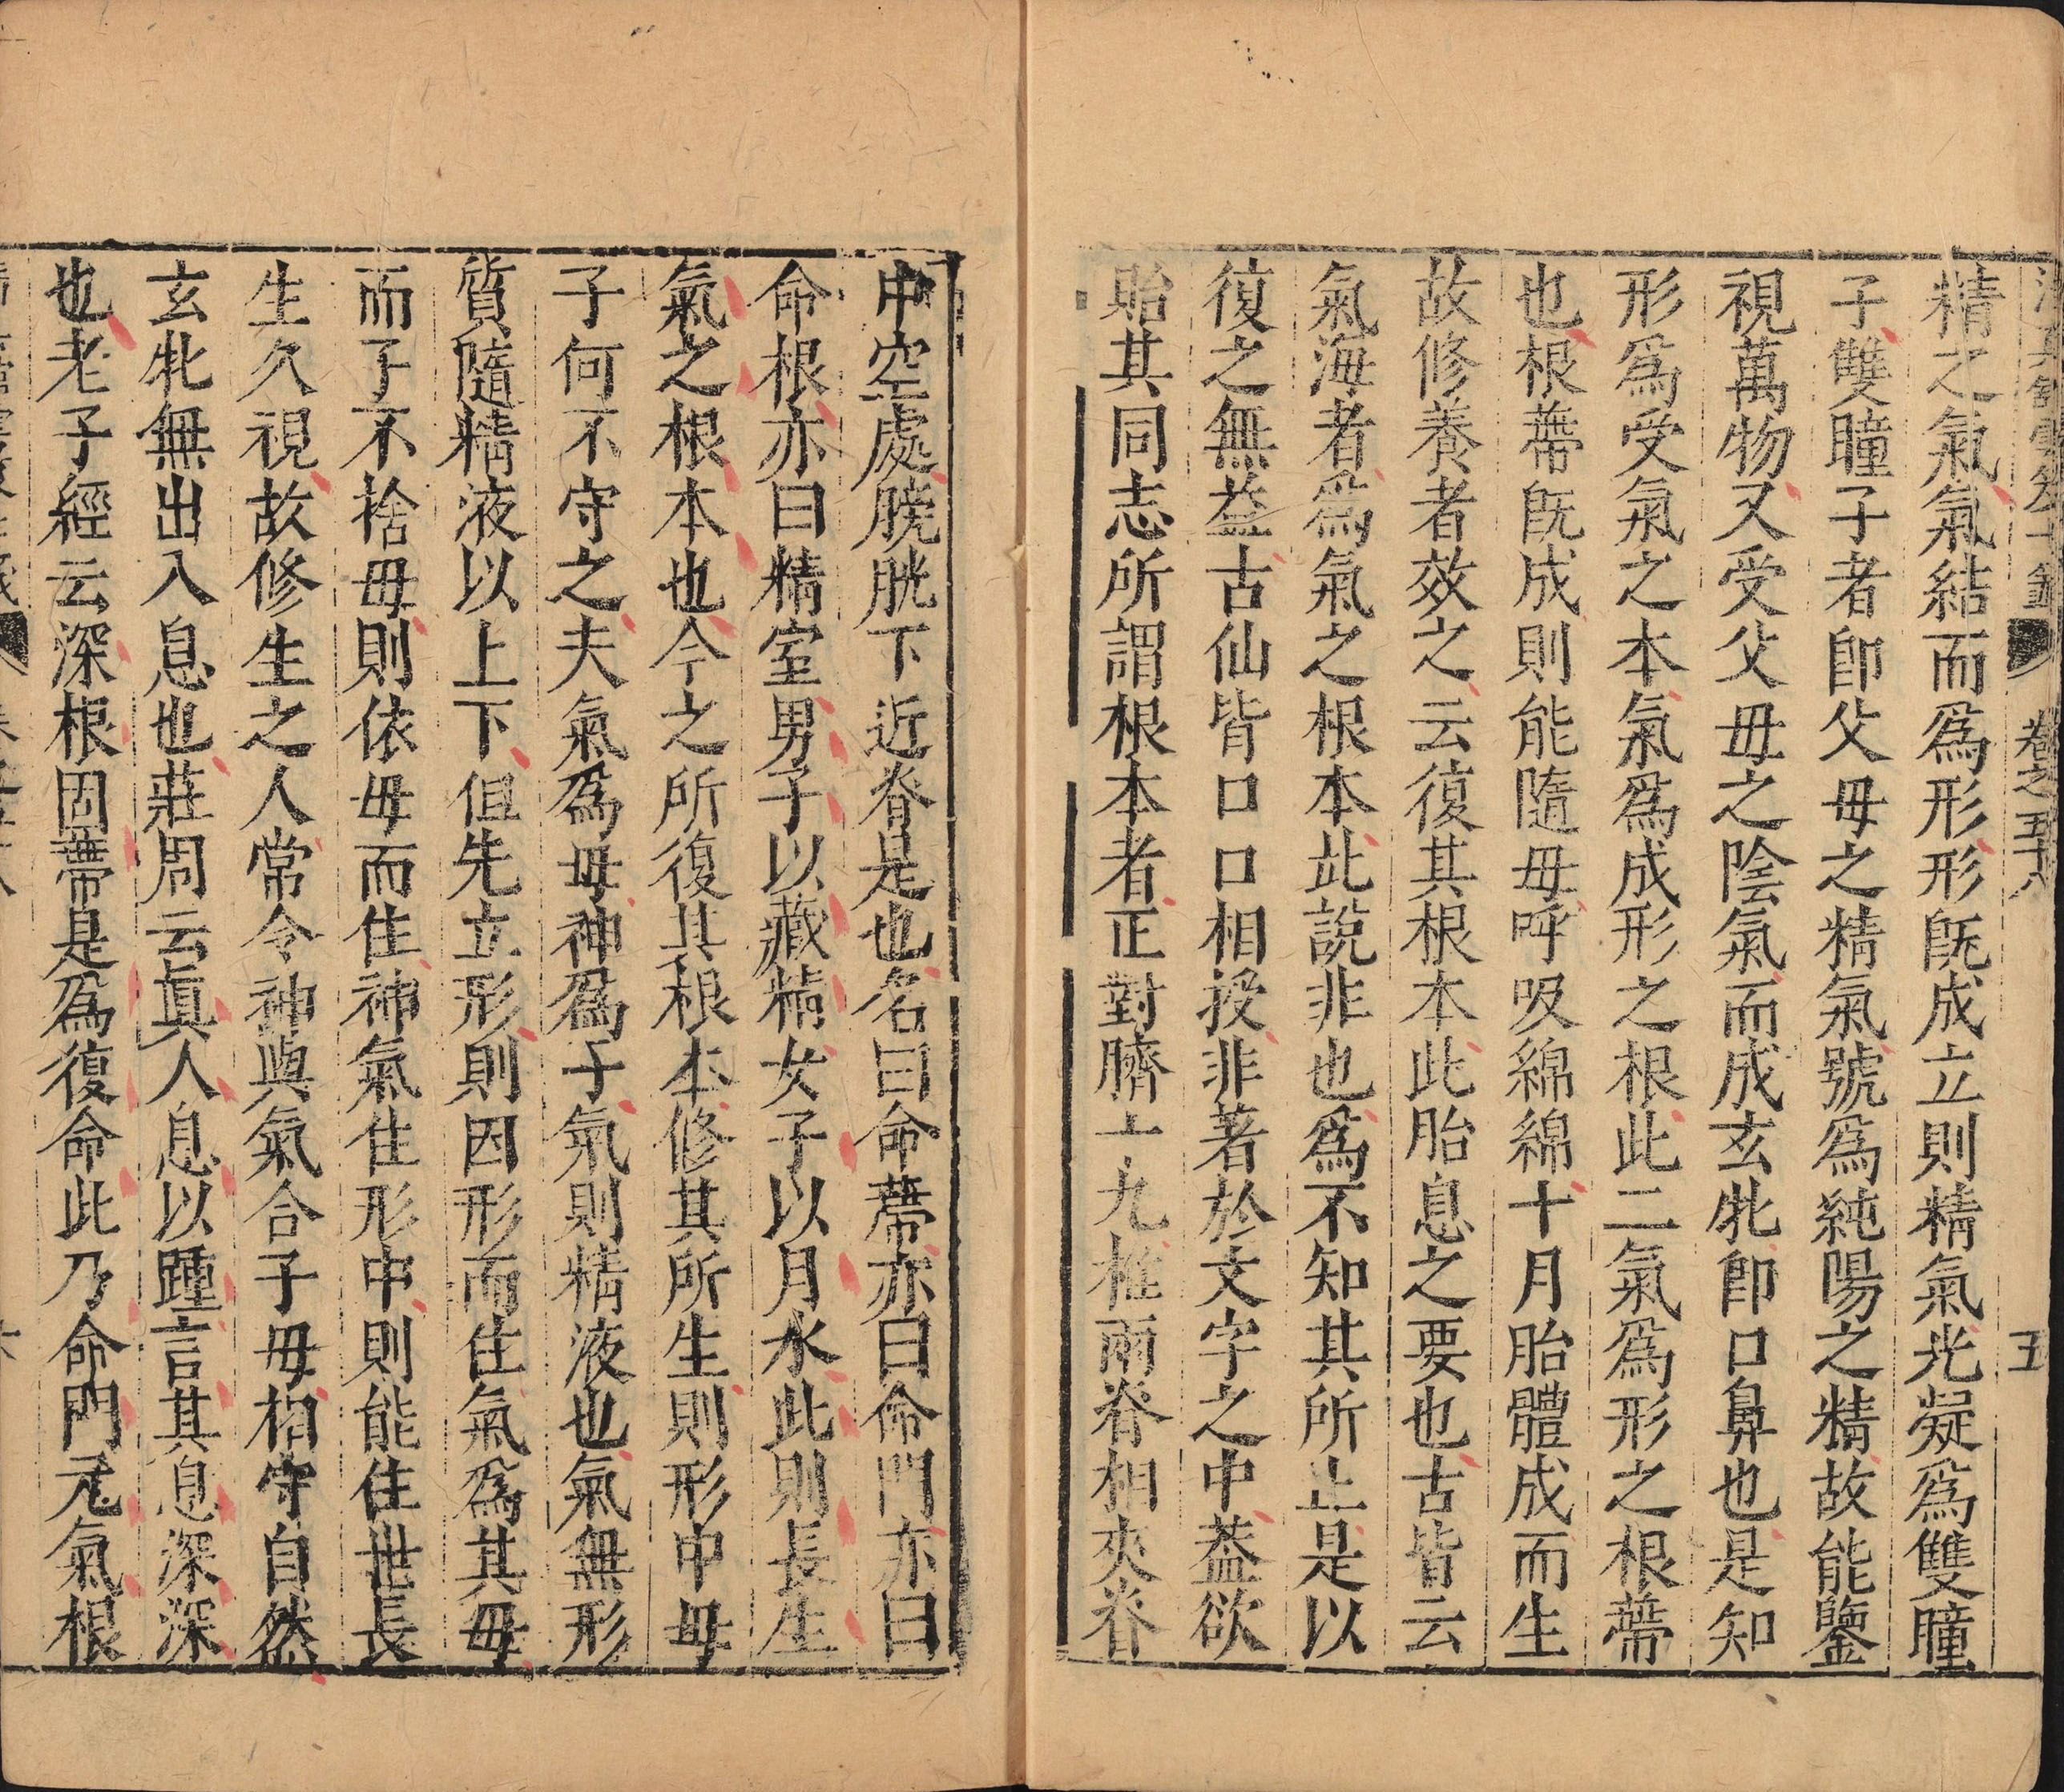 卷之五十八
五
精之氣氣結而爲形形旣成立則精氣光凝爲雙瞳
子雙瞳子者卽父母之精氣號爲純陽之精故能鑒
視萬物又受父母之陰氣而成玄牝卽口鼻也是知
形爲受氣之本氣爲成形之根此二氣爲形之根蔕
也根蔕旣成則能隨母呼吸綿綿十月胎體成而生
故修養者效之云復其根本此胎息之要也古皆云
氣海者爲氣之根本此說非也爲不知其所止是以
復之無益古仙皆口口相授非著於文字之中葢欲
貽其同志所謂根本者正對臍十九椎兩脊相夾脊
中空處膀胱下近脊是也名曰命蔕亦曰命門亦曰
命根亦曰精室男子以藏精女子以月水此則長生
氣之根本也今之所復其根本修其所生則形中母
子何不守之夫氣爲母神爲子氣則精液也氣無形
質隨精液以上下但先立形則因形而住氣爲其母
而子不捨母則依母而住神氣住形中則能住世長
生久視故修生之人常令神與氣合子母相守自然
玄牝無出入息也莊周云眞人息以踵言其息深深
也老子經云深根固蔕是爲復命此乃命門元氣根